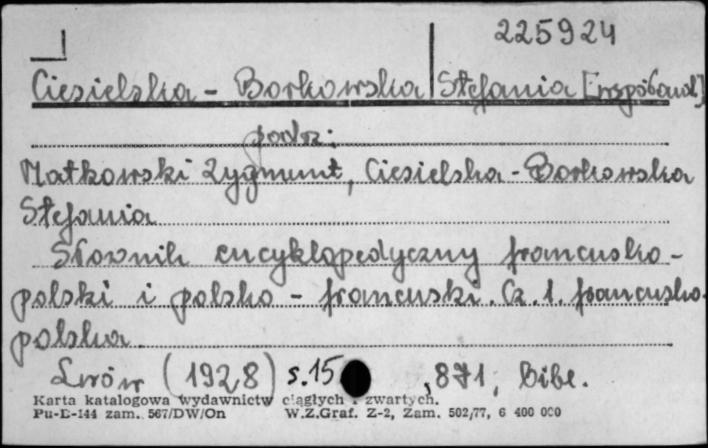 225924
Ciesielska - Borkowska Stefania [współaut]
podz:
Matkowski Zygmunt, Ciesielska - Borkowska
Stefania
Słownik encyklopedyczny francusko-
polski i polsko - francuski. Cz. 1. francusko-
polska
Lwów (1928) s. 15, 871, Bibl.
Karta katalogowa wydawnictw ciągłych i zwartych.
Pu-D-144 zam. 567/DW/On W.Z.Graf. Z-2, Zam. 502/77, 6 400 000